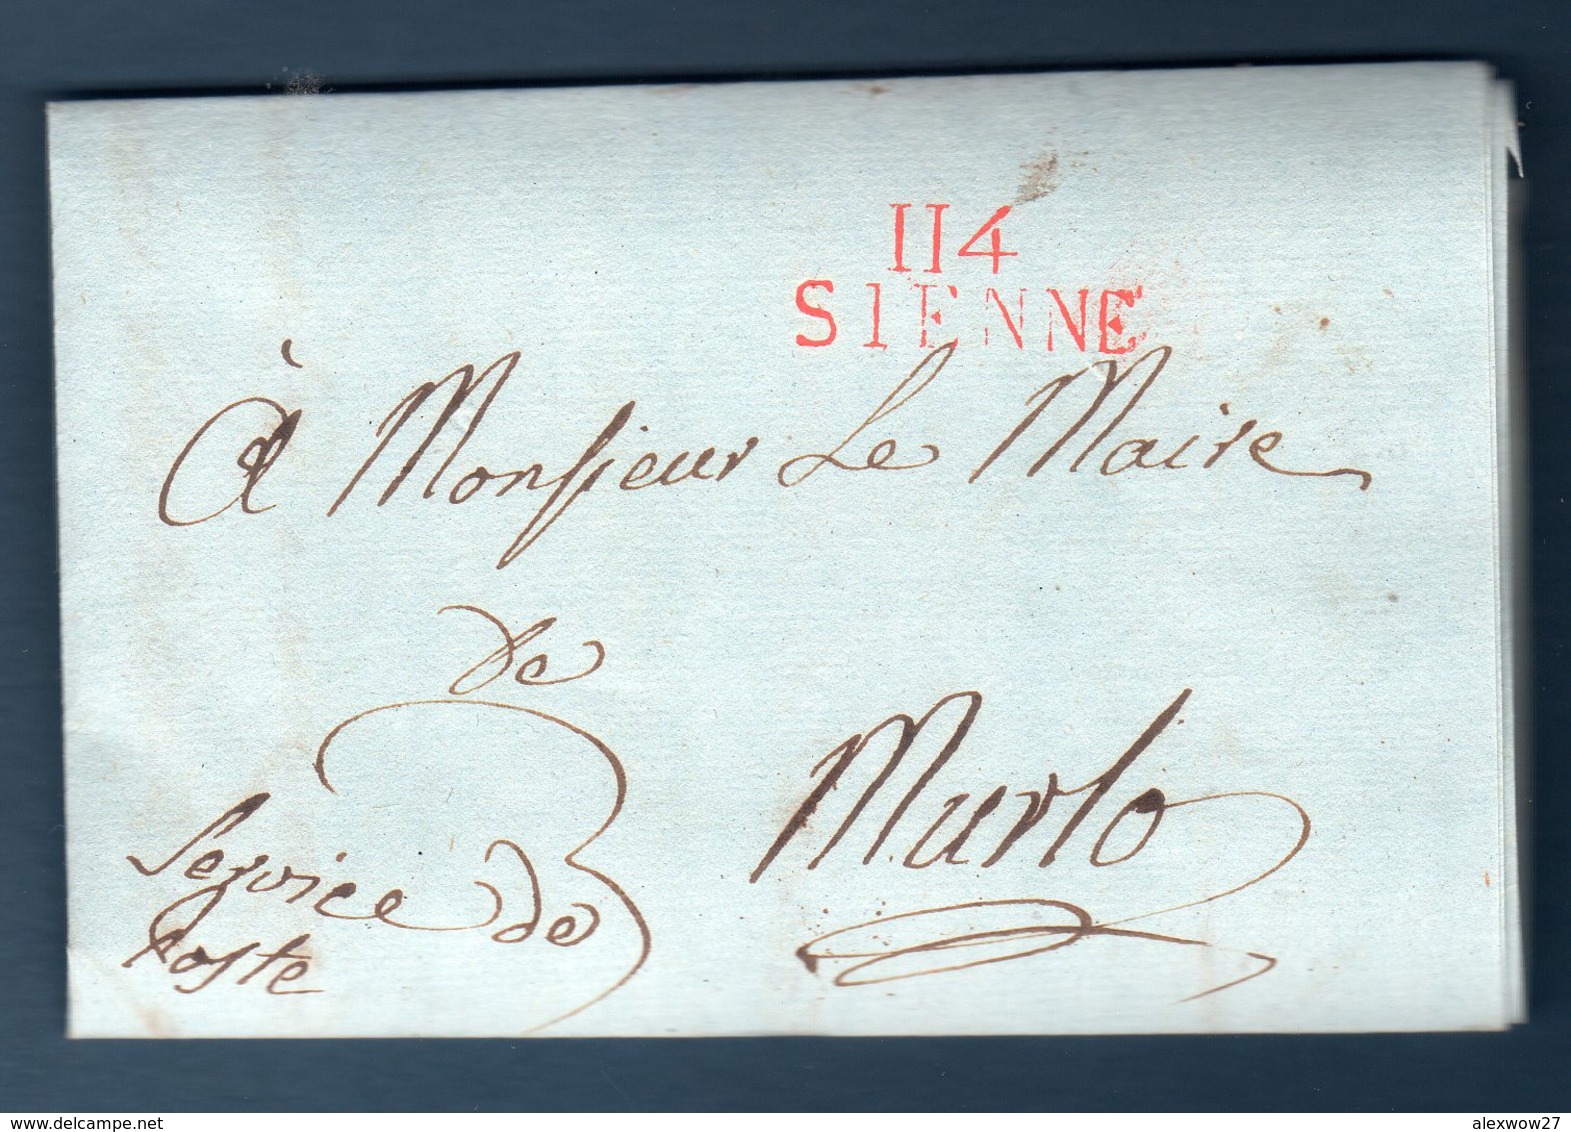 114
SIENNE
À Monsieur Le Maire
de
Murlo
Service de
Poste
delcampe.net
alexwow27